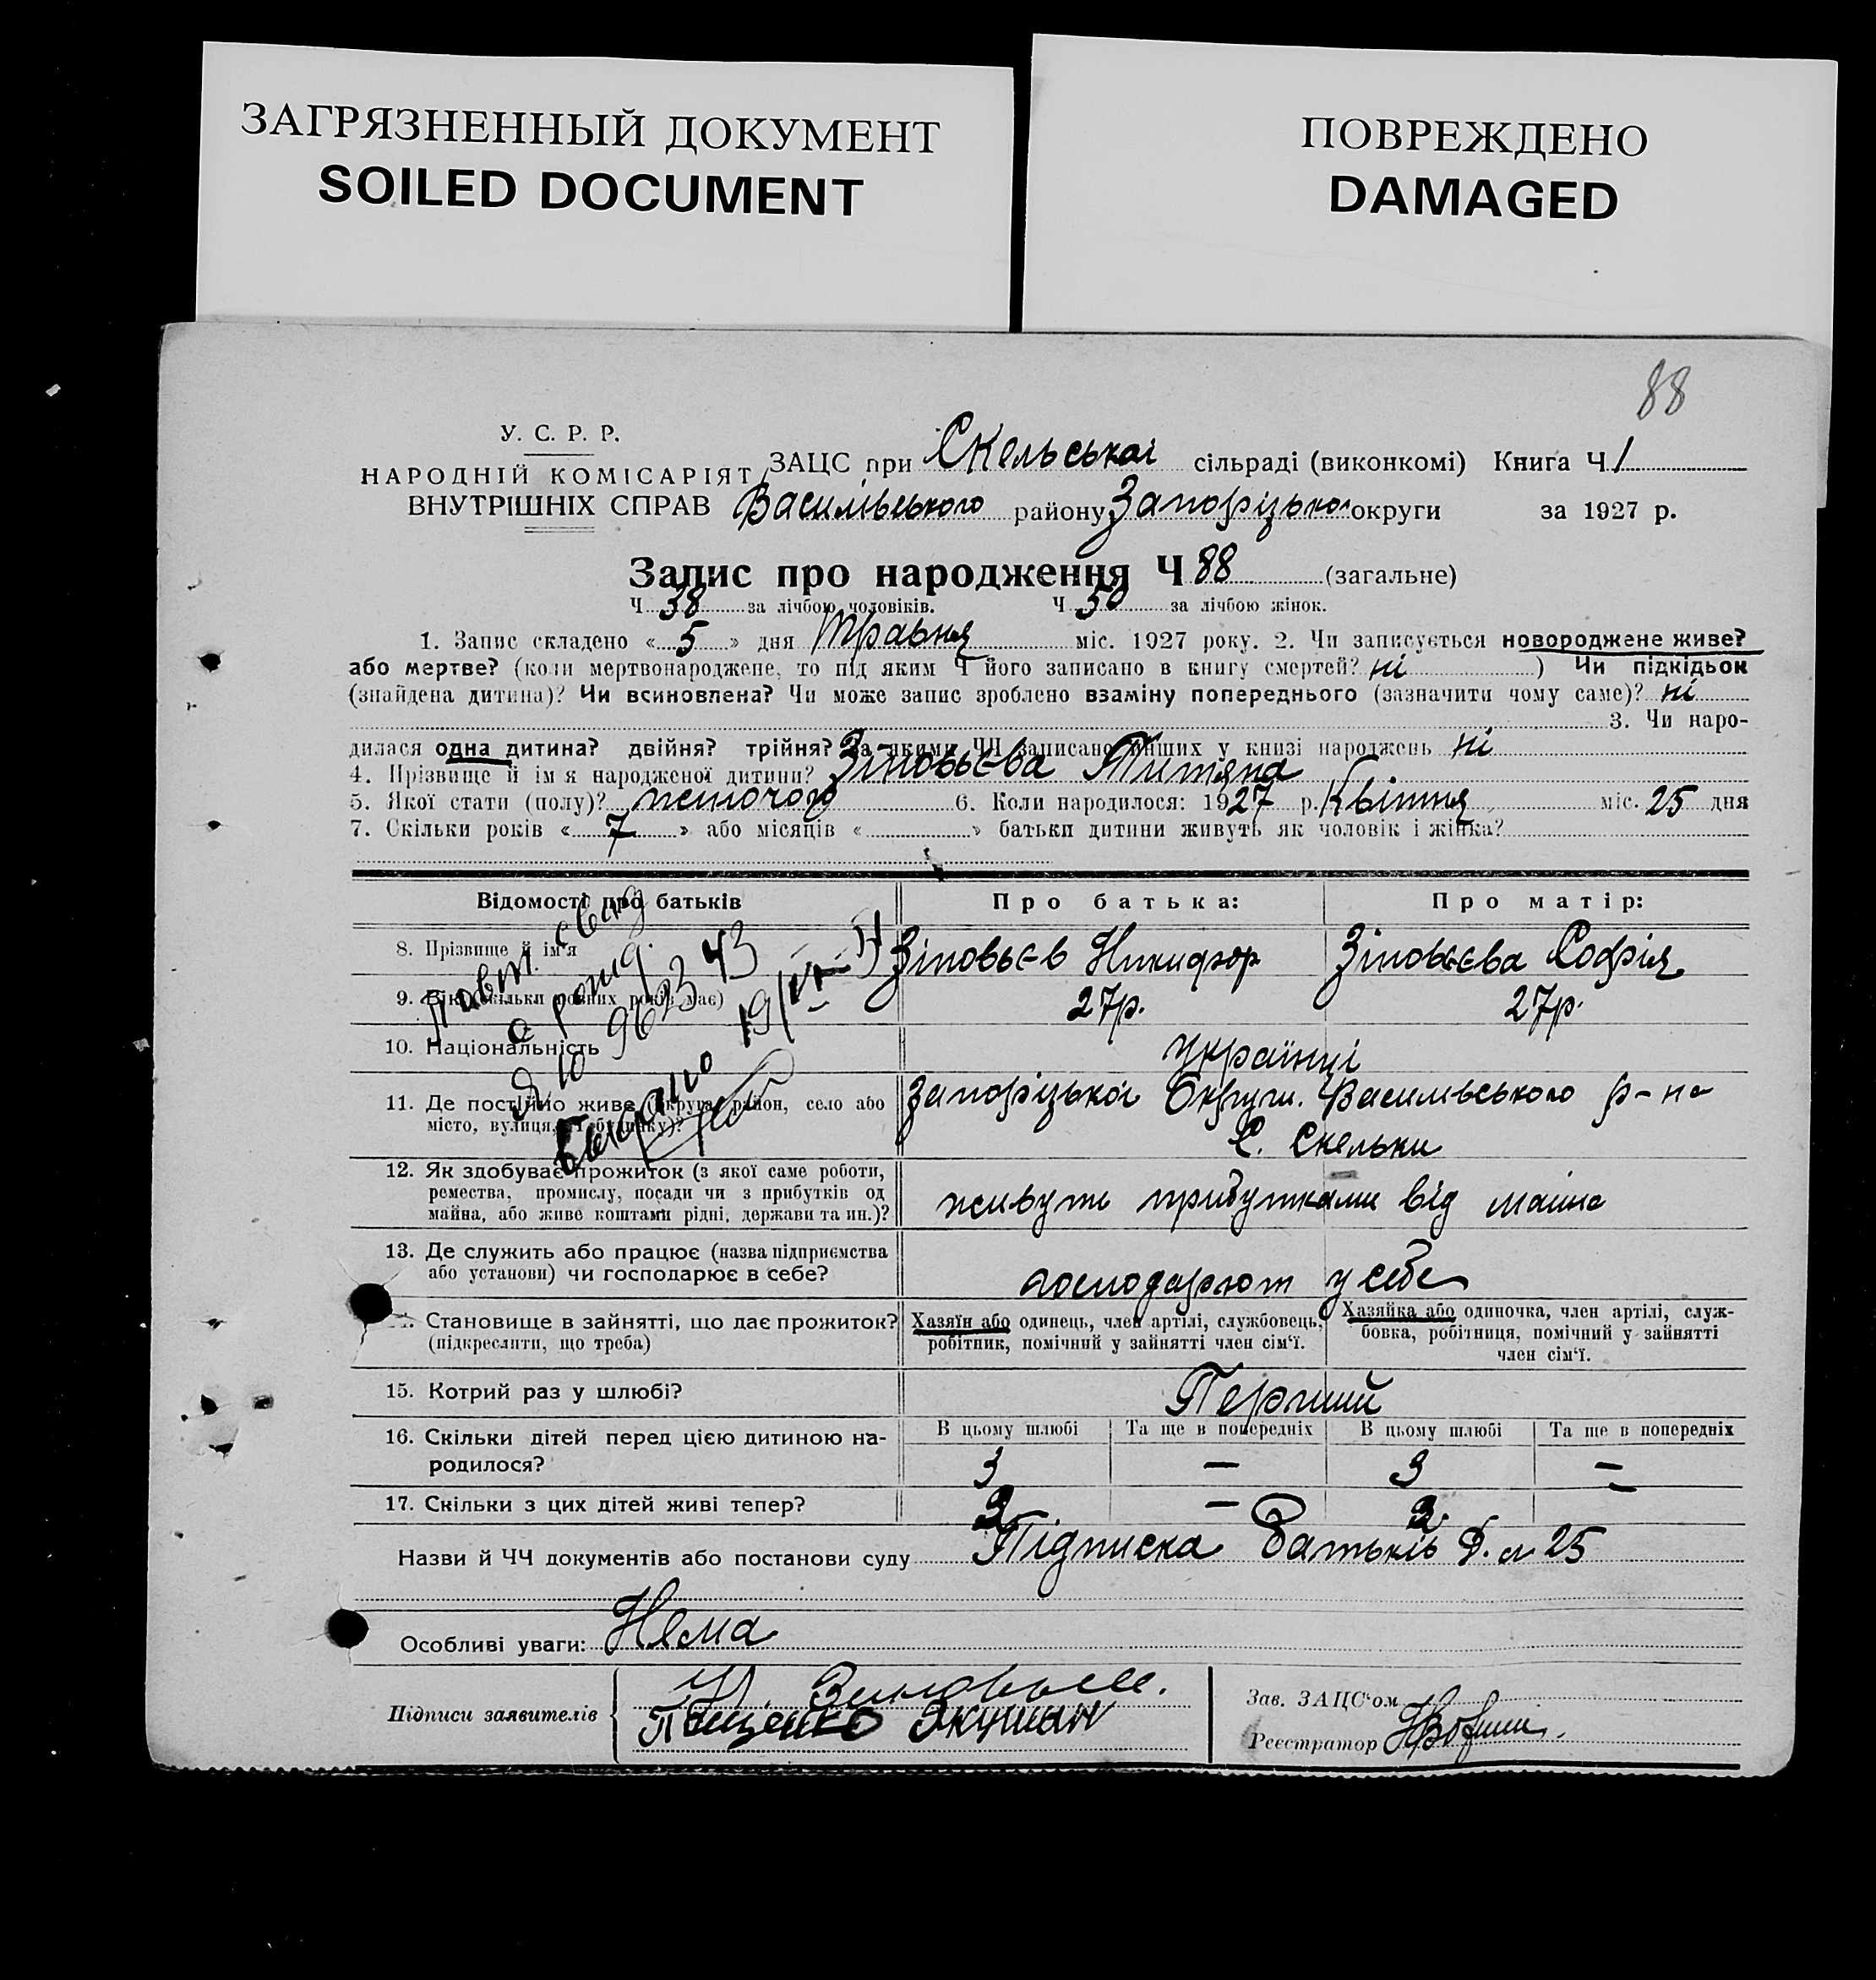 ЗАГРЯЗНЕННЫЙ ДОКУМЕНТ
SOILED DOCUMENT
ПОВРЕЖДЕНО
DAMAGED
88
У. С. Р. Р.
НАРОДНІЙ КОМІСАРІЯТ
ВНУТРІШНІХ СПРАВ
ЗАЦС при Скельської сільраді (виконкомі) Книга Ч 1
Василівського району Запорізької округи за 1927 р.
Запис про народження Ч 88 (загальне)
Ч 38 за лічбою чоловіків. Ч 50 за лічбою жінок.
1. Запис складено « 5 » дня Травня міс. 1927 року. 2. Чи записується новороджене живе?
або мертве? (коли мертвонароджене, то під яким Ч його записано в книгу смертей? ні ) Чи підкідьок
(знайдена дитина)? Чи всиновлена? Чи може запис зроблено взаміну попереднього (зазначити чому саме)? ні
3. Чи наро-
дилася одна дитина? двійня? трійня? За якими ЧЧ записано інших у книзі народжень ні
4. Прізвище й ім'я народженої дитини? Зіновьєва Титяна
5. Якої стати (полу)? жіночого 6. Коли народилося: 1927 р. Квітня міс. 25 дня
7. Скільки років « 7 » або місяців « » батьки дитини живуть як чоловік і жінка?
Відомості про батьків
Про батька:
Про матір:
8. Прізвище й ім'я
Зіновьєв Никифор
Зіновьєва Софія
9. Вік (скільки повних років має)
27р.
27р.
10. Національність
українці
11. Де постійно живе (округа, район, село або
місто, вулиця, Ч будинку)?
Запорізької Округи. Василівського р-на
С. Скельки
12. Як здобуває прожиток (з якої саме роботи,
ремества, промислу, посади чи з прибутків од
майна, або живе коштами рідні, держави та ин.)?
живуть прибутками від майна
13. Де служить або працює (назва підприємства
або установи) чи господарює в себе?
господарюют у себе
Становище в зайнятті, що дає прожиток?
(підкреслити, що треба)
Хазяїн або одинець, член артілі, службовець,
робітник, помічний у зайнятті член сім'ї.
Хазяйка або одиночка, член артілі, служ-
бовка, робітниця, помічний у зайнятті
член сім'ї.
15. Котрий раз у шлюбі?
Перший
16. Скільки дітей перед цією дитиною на-
родилося?
В цьому шлюбі
Та ще в попередніх
В цьому шлюбі
Та ще в попередніх
3 — 3 —
17. Скільки з цих дітей живі тепер?
2 — 2
Назви й ЧЧ документів або постанови суду Підписка Батьків Д. а 25
Особливі уваги: Нема
Підписи заявителів
Н. Зиновьев.
Пащенко Якушин
Зав. ЗАЦС'ом
Реєстратор